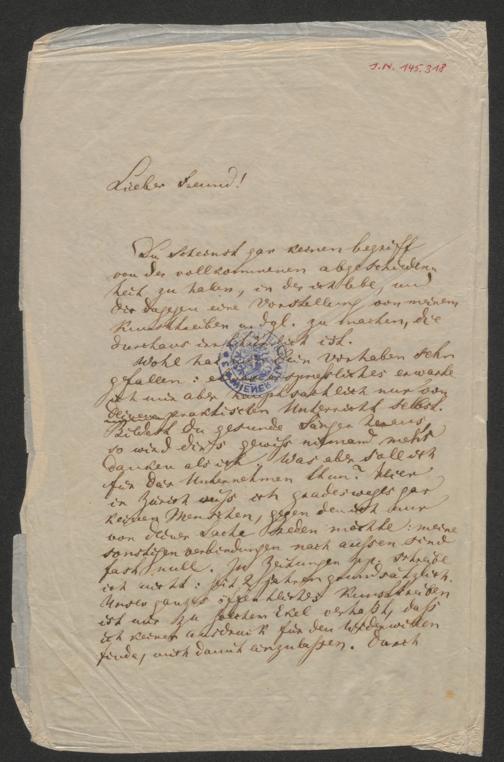 J.N. 145.318
Lieber Freund!
Du scheinst gar keinen begriff
von der vollkommenen abgeschieden
heit zu haben, in der ich lebe, und
Dir dagegen eine Vorstellung von meinem
Kunsttreiben u. dgl. zu machen, die
durchaus ist.
Wohl hat Vorhaben sehr
gefallen: erwarte
ich mir aber hauptsächlich nur von
Deinem praktischen Unterricht selbst.
Bildest Du gesunde Sänger heraus,
so wird dir's gewiss niemand mehr
danken als ich. Was aber soll ich
für das Unternehmen thun? Hier
in Zürich weiss ich gradeswegs gar
keinen Menschen, gegen den ich nur
von Deiner Sache reden möchte: meine
sonstigen verbindungen nach aussen sind
fast null. In Zeitungen pp. schreibe
ich nicht: seit 2 jahren grundsätzlich.
Unser ganzes öffentliches Kunsttreiben
ist mir zu solchem Ekel verhaßt, dass
ich keinen ausdruck für den Widerwillen
finde, mich damit einzulassen. Durch